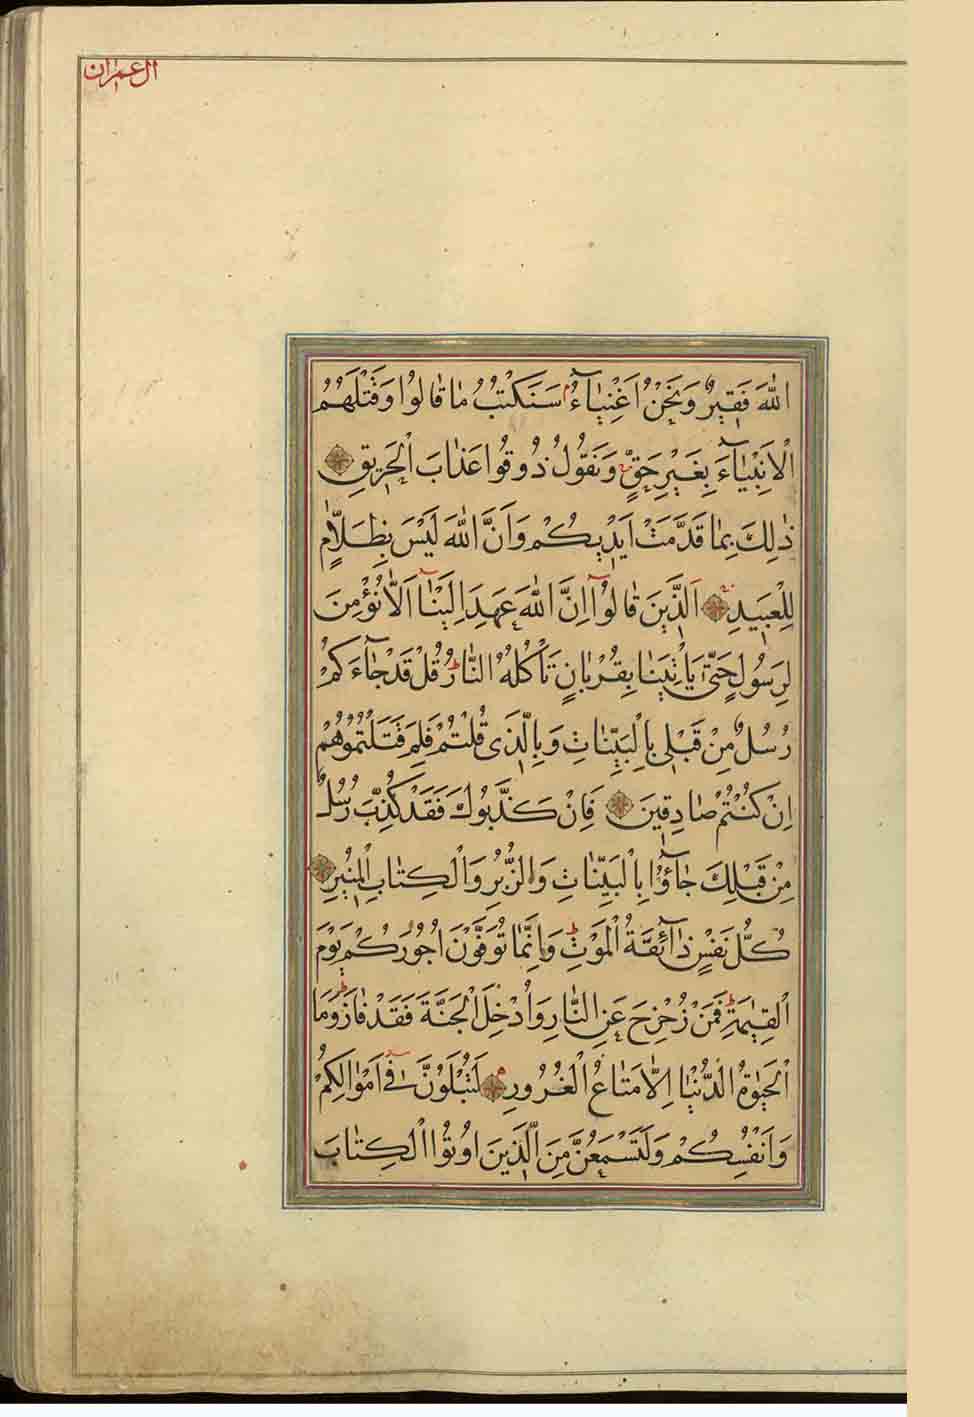 ال عمران
اللّٰهَ فَقِيرٌ وَنَحْنُ اَغْنِيَٓاءُ سَنَكْتُبُ مَا قَالُوا وَقَتْلَهُمُ
الْاَنْبِيَٓاءَ بِغَيْرِ حَقٍّ وَنَقُولُ ذُوقُوا عَذَابَ الْحَرِيقِ
ذٰلِكَ بِمَا قَدَّمَتْ اَيْدِيكُمْ وَاَنَّ اللّٰهَ لَيْسَ بِظَلَّامٍ
لِلْعَبِيدِ اَلَّذِينَ قَالُٓوا اِنَّ اللّٰهَ عَهِدَ اِلَيْنَٓا اَلَّا نُؤْمِنَ
لِرَسُولٍ حَتّٰى يَاْتِيَنَا بِقُرْبَانٍ تَاْكُلُهُ النَّارُ قُلْ قَدْ جَٓاءَكُمْ
رُسُلٌ مِنْ قَبْلِى بِالْبَيِّنَاتِ وَبِالَّذِى قُلْتُمْ فَلِمَ قَتَلْتُمُوهُمْ
اِنْ كُنْتُمْ صَادِقِينَ فَاِنْ كَذَّبُوكَ فَقَدْ كُذِّبَ رُسُلٌ
مِنْ قَبْلِكَ جَٓاؤُ۫ا بِالْبَيِّنَاتِ وَالزُّبُرِ وَالْكِتَابِ الْمُنِيرِ
كُلُّ نَفْسٍ ذَٓائِقَةُ الْمَوْتِ وَاِنَّمَا تُوَفَّوْنَ اُجُورَكُمْ يَوْمَ
الْقِيٰمَةِ فَمَنْ زُحْزِحَ عَنِ النَّارِ وَاُدْخِلَ الْجَنَّةَ فَقَدْ فَازَ وَمَا
الْحَيٰوةُ الدُّنْيَا اِلَّا مَتَاعُ الْغُرُورِ لَتُبْلَوُنَّ فِٓى اَمْوَالِكُمْ
وَاَنْفُسِكُمْ وَلَتَسْمَعُنَّ مِنَ الَّذِينَ اُوتُوا الْكِتَابَ